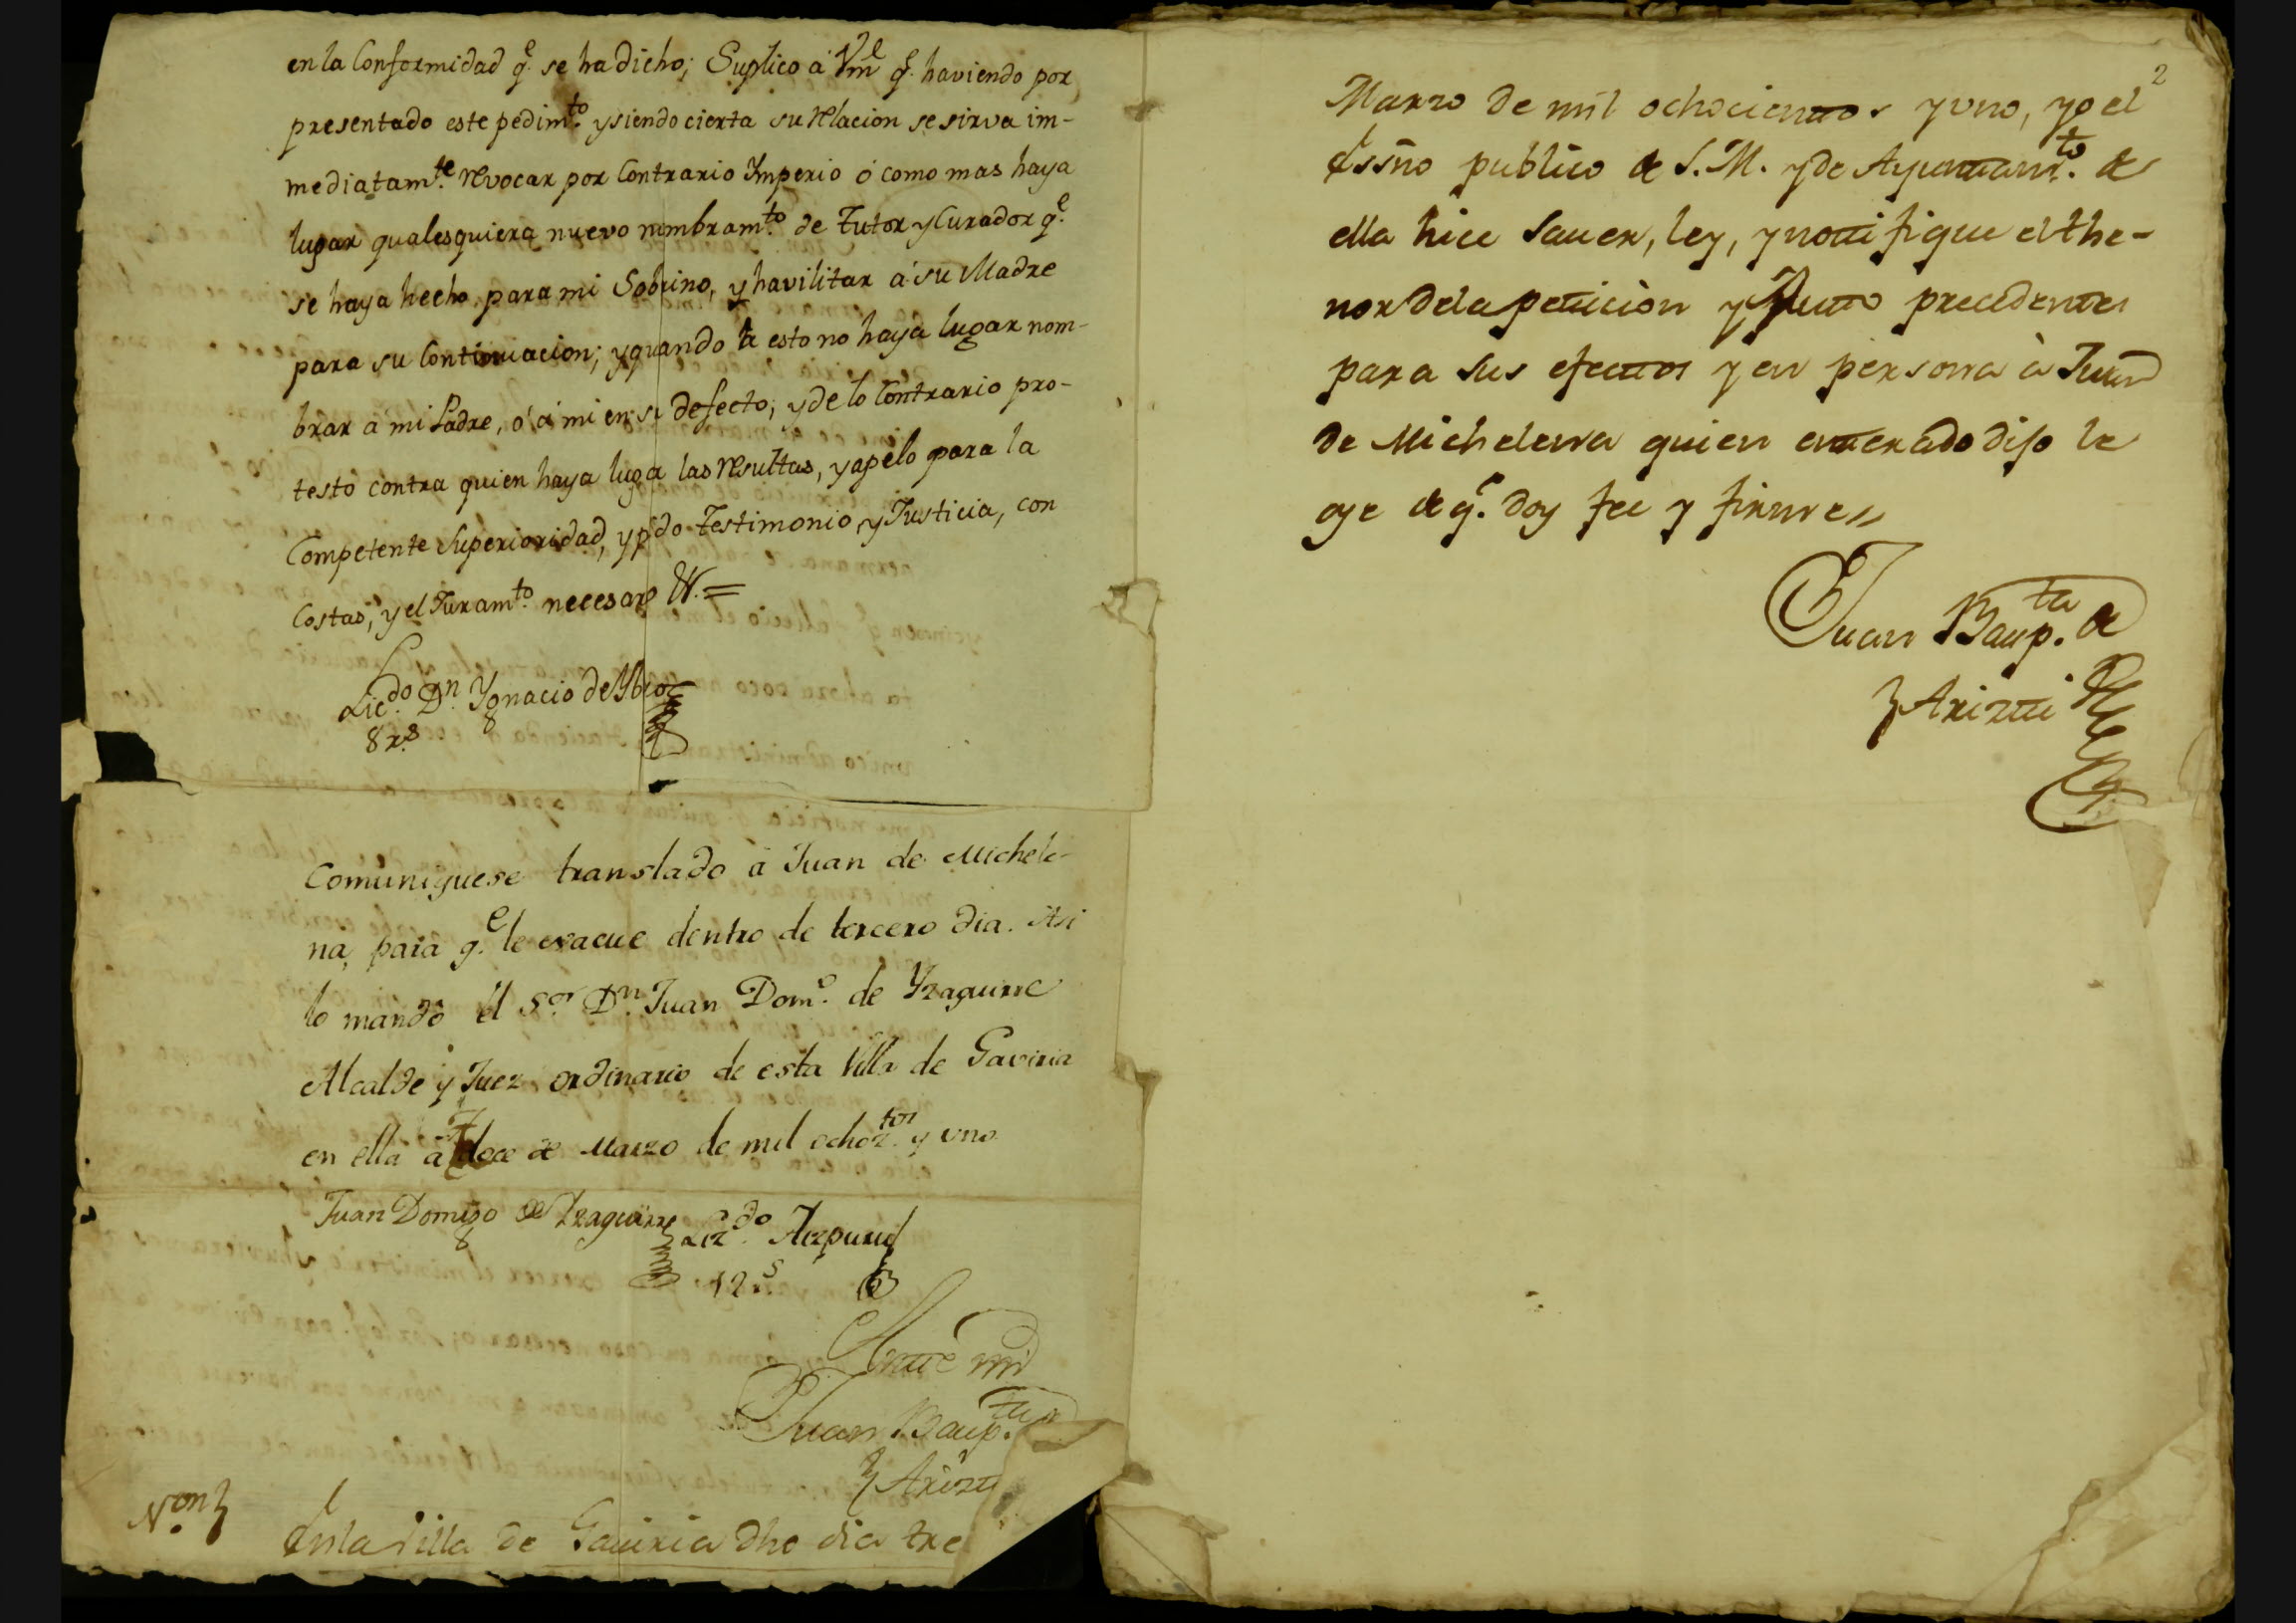 en la Conformidad q.e se ha dicho; Suplico á Vm.e q.e haviendo por
presentado este pedim.to y siendo cierta su relacion se sirva im-
mediatam.te revocar por Contrario Ymperio ó como mas haya
lugar qualesquiera nuevo nombram.to de Tutor y Curador q.e
se haya hecho para mi Sobrino, y havilitar á su Madre
para su Continuacion; y quando á esto no haya lugar nom-
brar á mi Padre, ó á mi en su defecto; y de lo Contrario pro-
testo contra quien haya lugar las resultas, y apelo para la
Competente Superioridad, y pido testimonio, y Justicia, con
Costas, y el Juram.to necesar.o
Lic.do D.n Ygnacio de
8 r.s
Comuniquese translado á Juan de Michele-
na, para q.e le evacue dentro de tercero dia. Asi
lo mandó el S.or D.n Juan Dom.o de Yzaguirre
Alcalde y Juez ordinario de esta Villa de Gaviria
en ella á doce de Marzo de mil ochoz.tos y uno.
Juan Domingo de Yzaguirre Liz.do Aizpuru
12 r.s
Ante mi
Juan Baup.ta
Arizti
N.on En la Villa de Gaviria dho dia tre
2
Marzo de mil ochocientos y uno, yo el
Essño publico de S. M. y de Ayuntam.to de
ella hice saver, ley, y notifique el the-
nor dela peticion y Auto precedentes
para sus efectos y en persona à Juan
de Michelena quien enterado dijo le
oye de q.e doy fee y firme
Juan Baup.ta de
Arizti